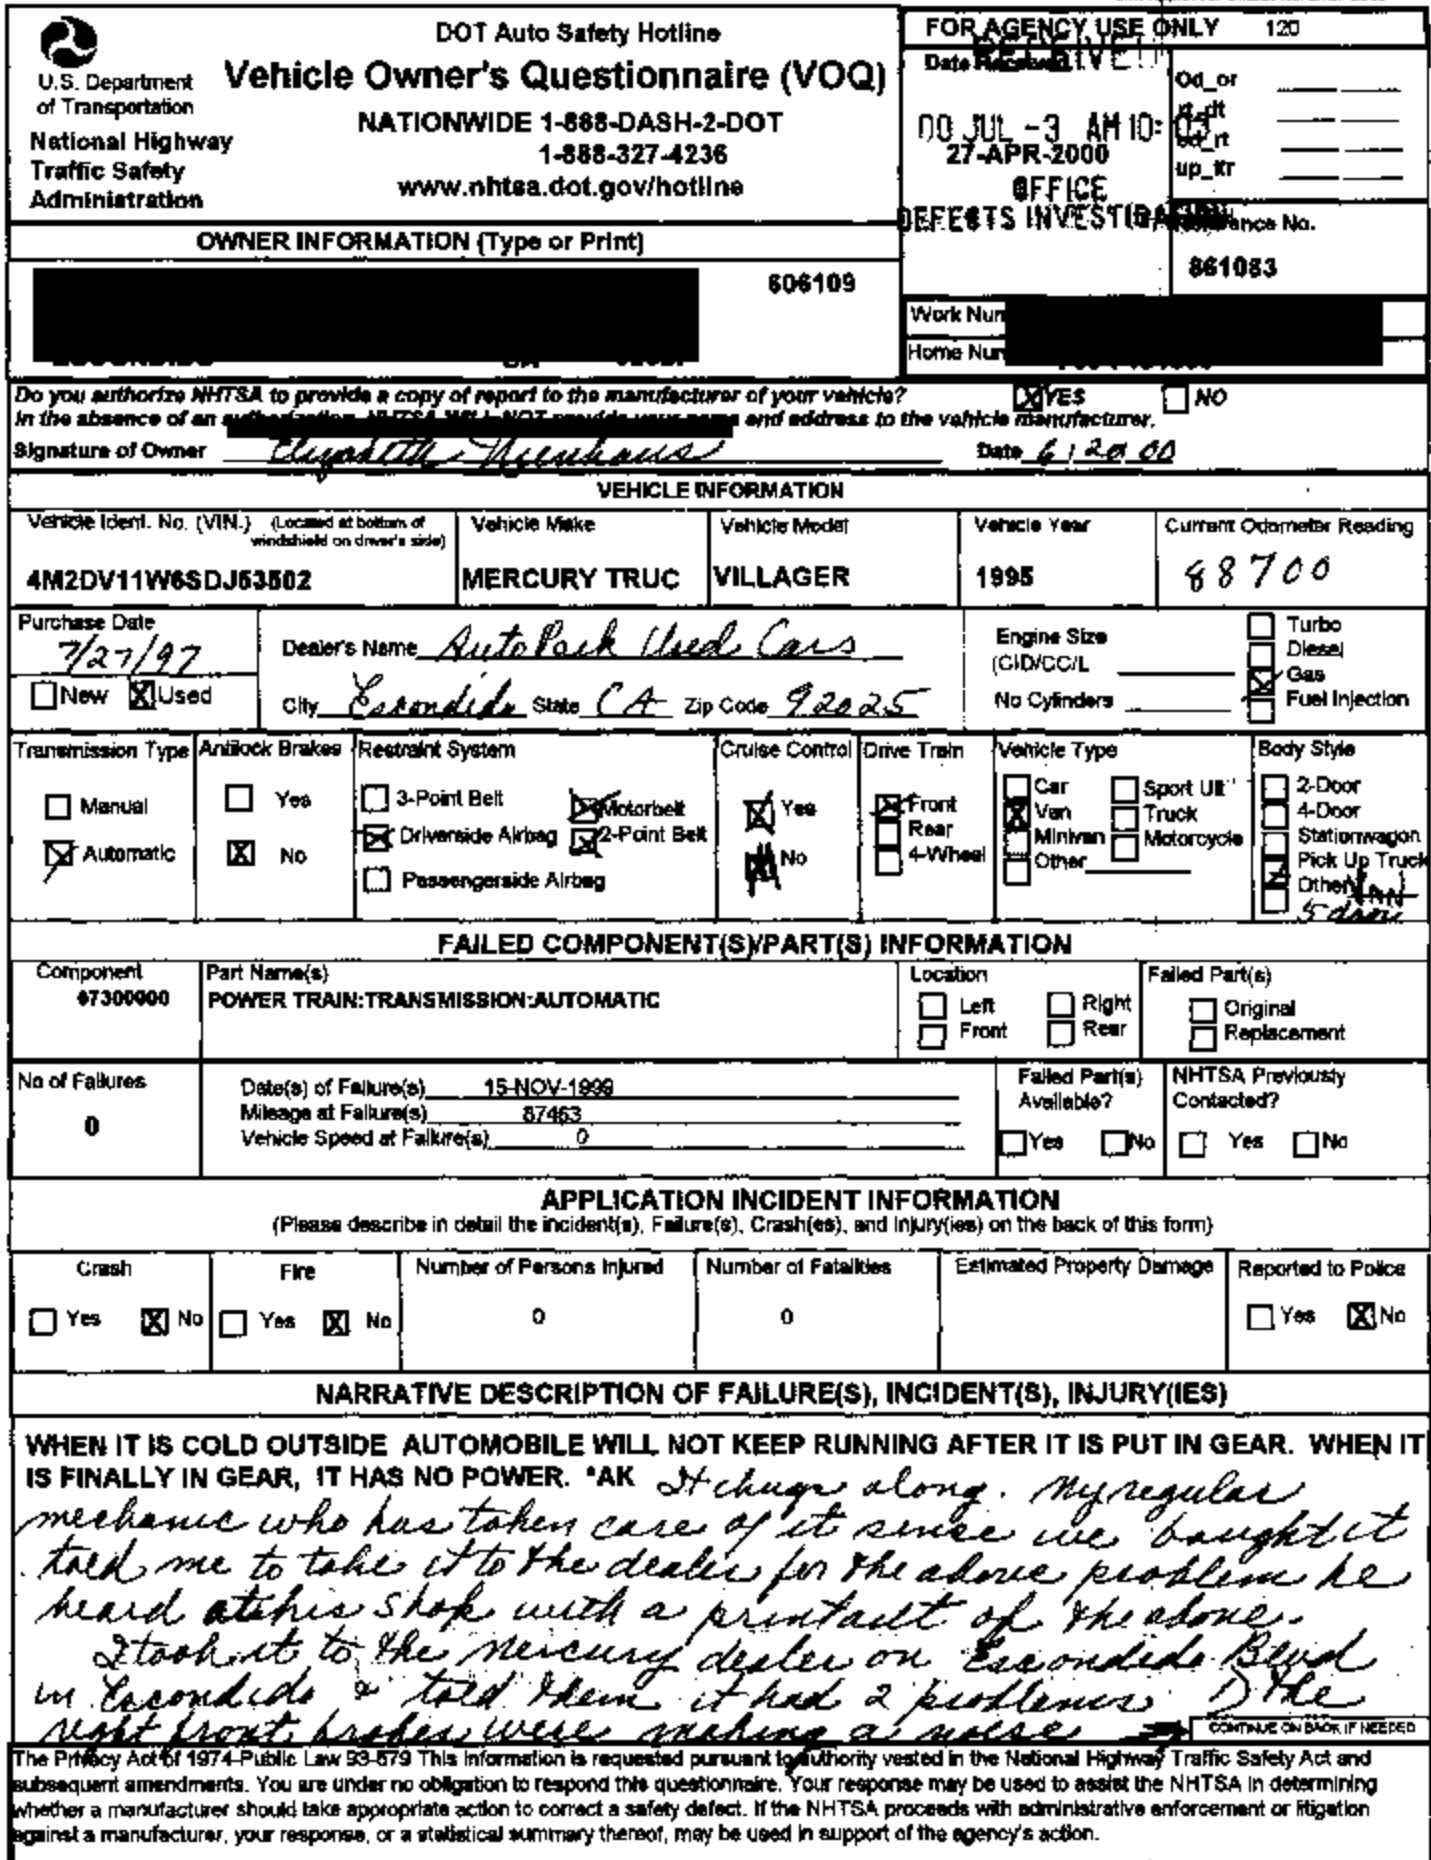 DOT Auto Safety Hotline
Vehicle Owner's Questionnaire (VOQ)
NATIONWIDE 1-888-DASH-2-DOT
1-888-327-4236
www.nhtsa.dot.gov/hotline
U.S. Department
of Transportation
National Highway
Traffic Safety
Administration
FOR AGENCY USE ONLY 120
Date Received
00 JUL -3 AM 10: 03
27-APR-2000
OFFICE
DEFECTS INVESTIGATION
Od_or
rt_dt
od_rt
up_ltr
Reference No.
861083
OWNER INFORMATION (Type or Print)
606109
Work Num
Home Num
Do you authorize NHTSA to provide a copy of report to the manufacturer of your vehicle? YES NO
In the absence of an authorization, NHTSA WILL NOT provide your name and address to the vehicle manufacturer.
Signature of Owner Date 6/20/00
VEHICLE INFORMATION
Vehicle Ident. No. (VIN.) (Located at bottom of windshield on driver's side)
4M2DV11W6SDJ53502
Vehicle Make
MERCURY TRUC
Vehicle Model
VILLAGER
Vehicle Year
1995
Current Odometer Reading
88700
Purchase Date
7/27/97
New Used
Dealer's Name AutoPark Used Cars
City Escondido State CA Zip Code 92025
Engine Size
(CID/CC/L
No Cylinders
Turbo
Diesel
Gas
Fuel Injection
Transmission Type
Manual
Automatic
Antilock Brakes
Yes
No
Restraint System
3-Point Belt Motorbelt
Driverside Airbag 2-Point Belt
Passengerside Airbag
Cruise Control
Yes
No
Drive Train
Front
Rear
4-Wheel
Vehicle Type
Car Sport Util
Van Truck
Minivan Motorcycle
Other
Body Style
2-Door
4-Door
Stationwagon
Pick Up Truck
Other Van
5 door
FAILED COMPONENT(S)/PART(S) INFORMATION
Component
07300000
Part Name(s)
POWER TRAIN:TRANSMISSION:AUTOMATIC
Location
Left Right
Front Rear
Failed Part(s)
Original
Replacement
No of Failures
0
Date(s) of Failure(s) 15-NOV-1999
Mileage at Failure(s) 87463
Vehicle Speed at Failure(s) 0
Failed Part(s)
Available?
Yes No
NHTSA Previously
Contacted?
Yes No
APPLICATION INCIDENT INFORMATION
(Please describe in detail the incident(s), Failure(s), Crash(es), and Injury(ies) on the back of this form)
Crash
Yes No
Fire
Yes No
Number of Persons Injured
0
Number of Fatalities
0
Estimated Property Damage
Reported to Police
Yes No
NARRATIVE DESCRIPTION OF FAILURE(S), INCIDENT(S), INJURY(IES)
WHEN IT IS COLD OUTSIDE AUTOMOBILE WILL NOT KEEP RUNNING AFTER IT IS PUT IN GEAR. WHEN IT
IS FINALLY IN GEAR, IT HAS NO POWER. *AK It chugs along. My regular
mechanic who has taken care of it sense we bought it
told me to take it to the dealer for the above problem he
heard at his shop with a printout of the above.
I took it to the Mercury dealer on Escondido Blvd
in Escondido & told them it had 2 problems 1) the
right front brakes were making a noise
CONTINUE ON BACK IF NEEDED
The Privacy Act of 1974-Public Law 93-579 This information is requested pursuant to authority vested in the National Highway Traffic Safety Act and
subsequent amendments. You are under no obligation to respond this questionnaire. Your response may be used to assist the NHTSA in determining
whether a manufacturer should take appropriate action to correct a safety defect. If the NHTSA proceeds with administrative enforcement or litigation
against a manufacturer, your response, or a statistical summary thereof, may be used in support of the agency's action.